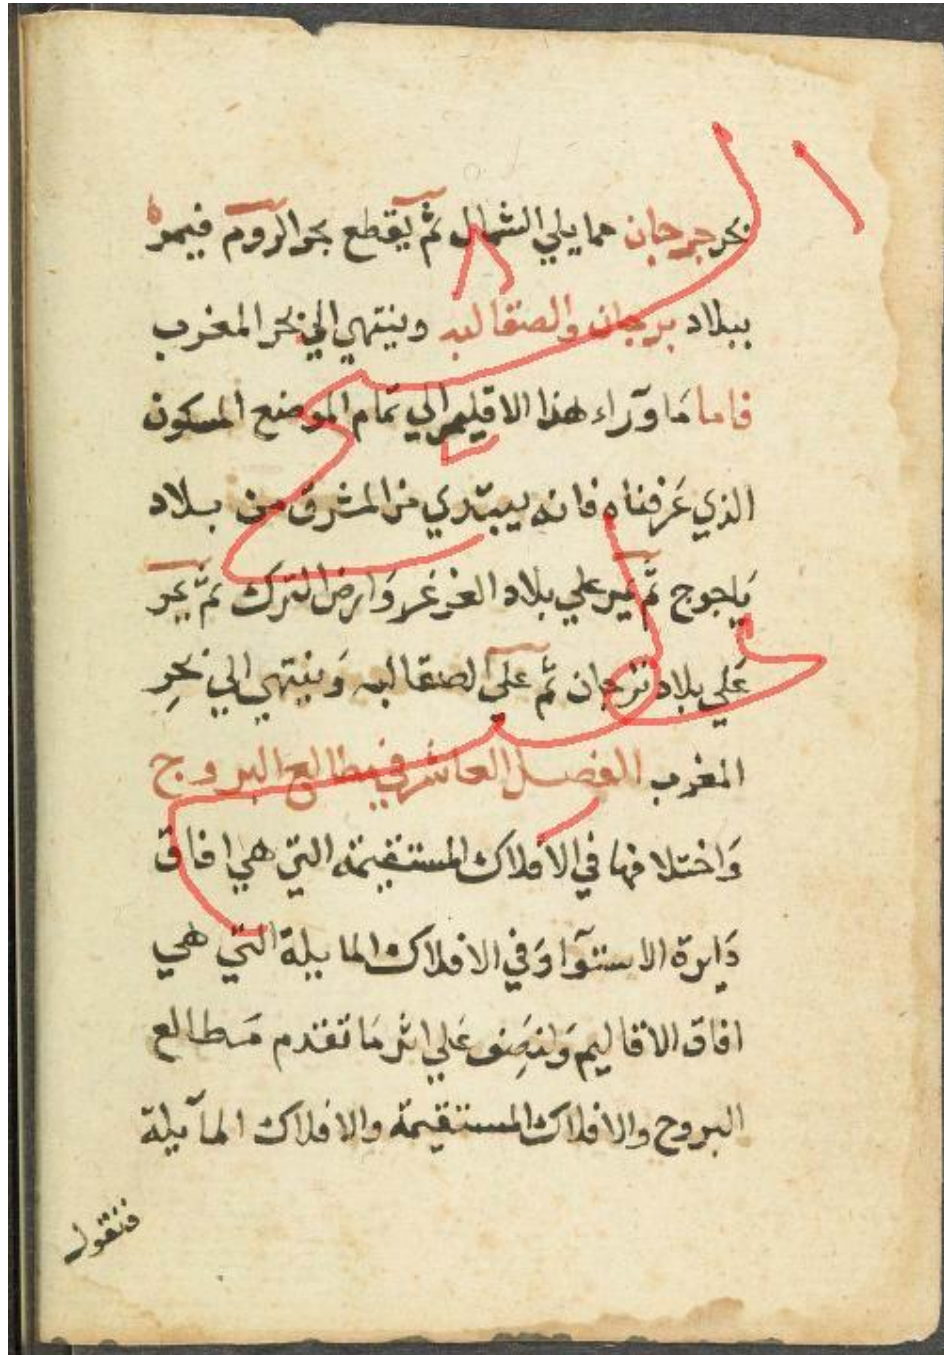 بحر جرجان مما يلي الشمال ثم يقطع بحر الروم فيمر
ببلاد برجان والصقالبه وينتهي الي بحر المغرب
فاما مَا وَرآء هذا الاقليم الي تمام الموضع المسكون
الذي عَرفناه فانه يبتدي من المشرق من بلاد
يَاجوج ثم يمر علي بلاد الغزغز وَارض الترك ثم يمر
عَلي بلاد برجان ثم علي الصقالبه وَينتهي الي بحر
المغرب الفصل العاشر في مطالع البروج
وَاختلافها في الافلاك المستقيمة التي هي افاق
دَايرة الاستوآ وَفي الافلاك المايلة التي هي
افاق الاقاليم وَلنصِف عَلي اثر مَا تقدم مَطالع
البروج والافلاك المستقيمة والافلاك المآيلة
فنقول